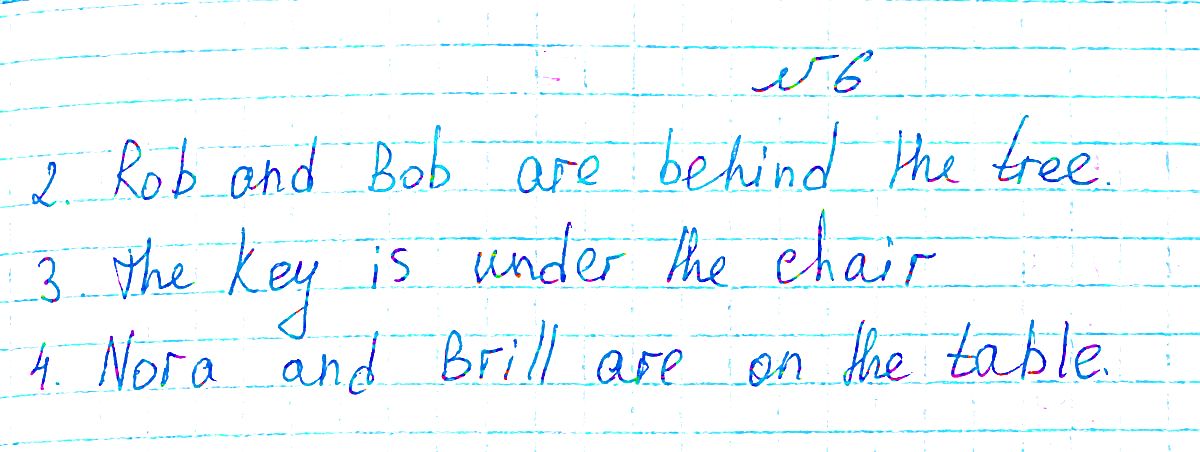 №6
2. Rob and Bob are behind the tree.
3. The key is under the chair
4. Nora and Brill are on the table.